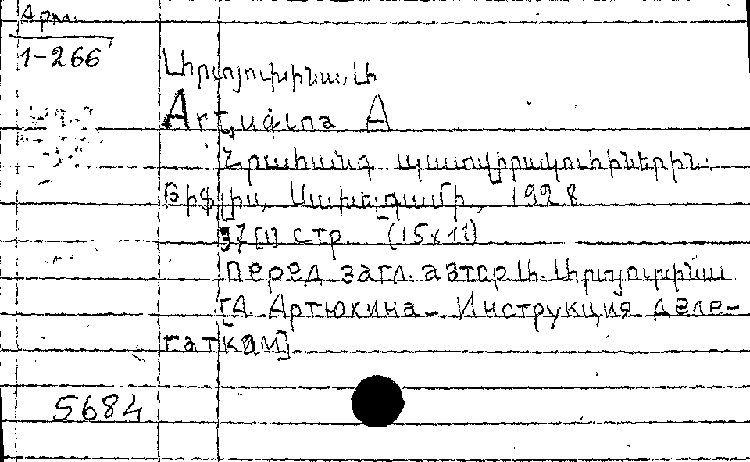 Арм.
1-266
Արտյուխինա, Ա
Артюхина А
Հրահանգ պատգամավորուհիներին.
Թիֆլիս, 1928
37[1] стр. (15x11)
Перед загл. автор Ա. Արտյուխինա
[А Артюкина - Инструкция деле-
гаткам]
5684